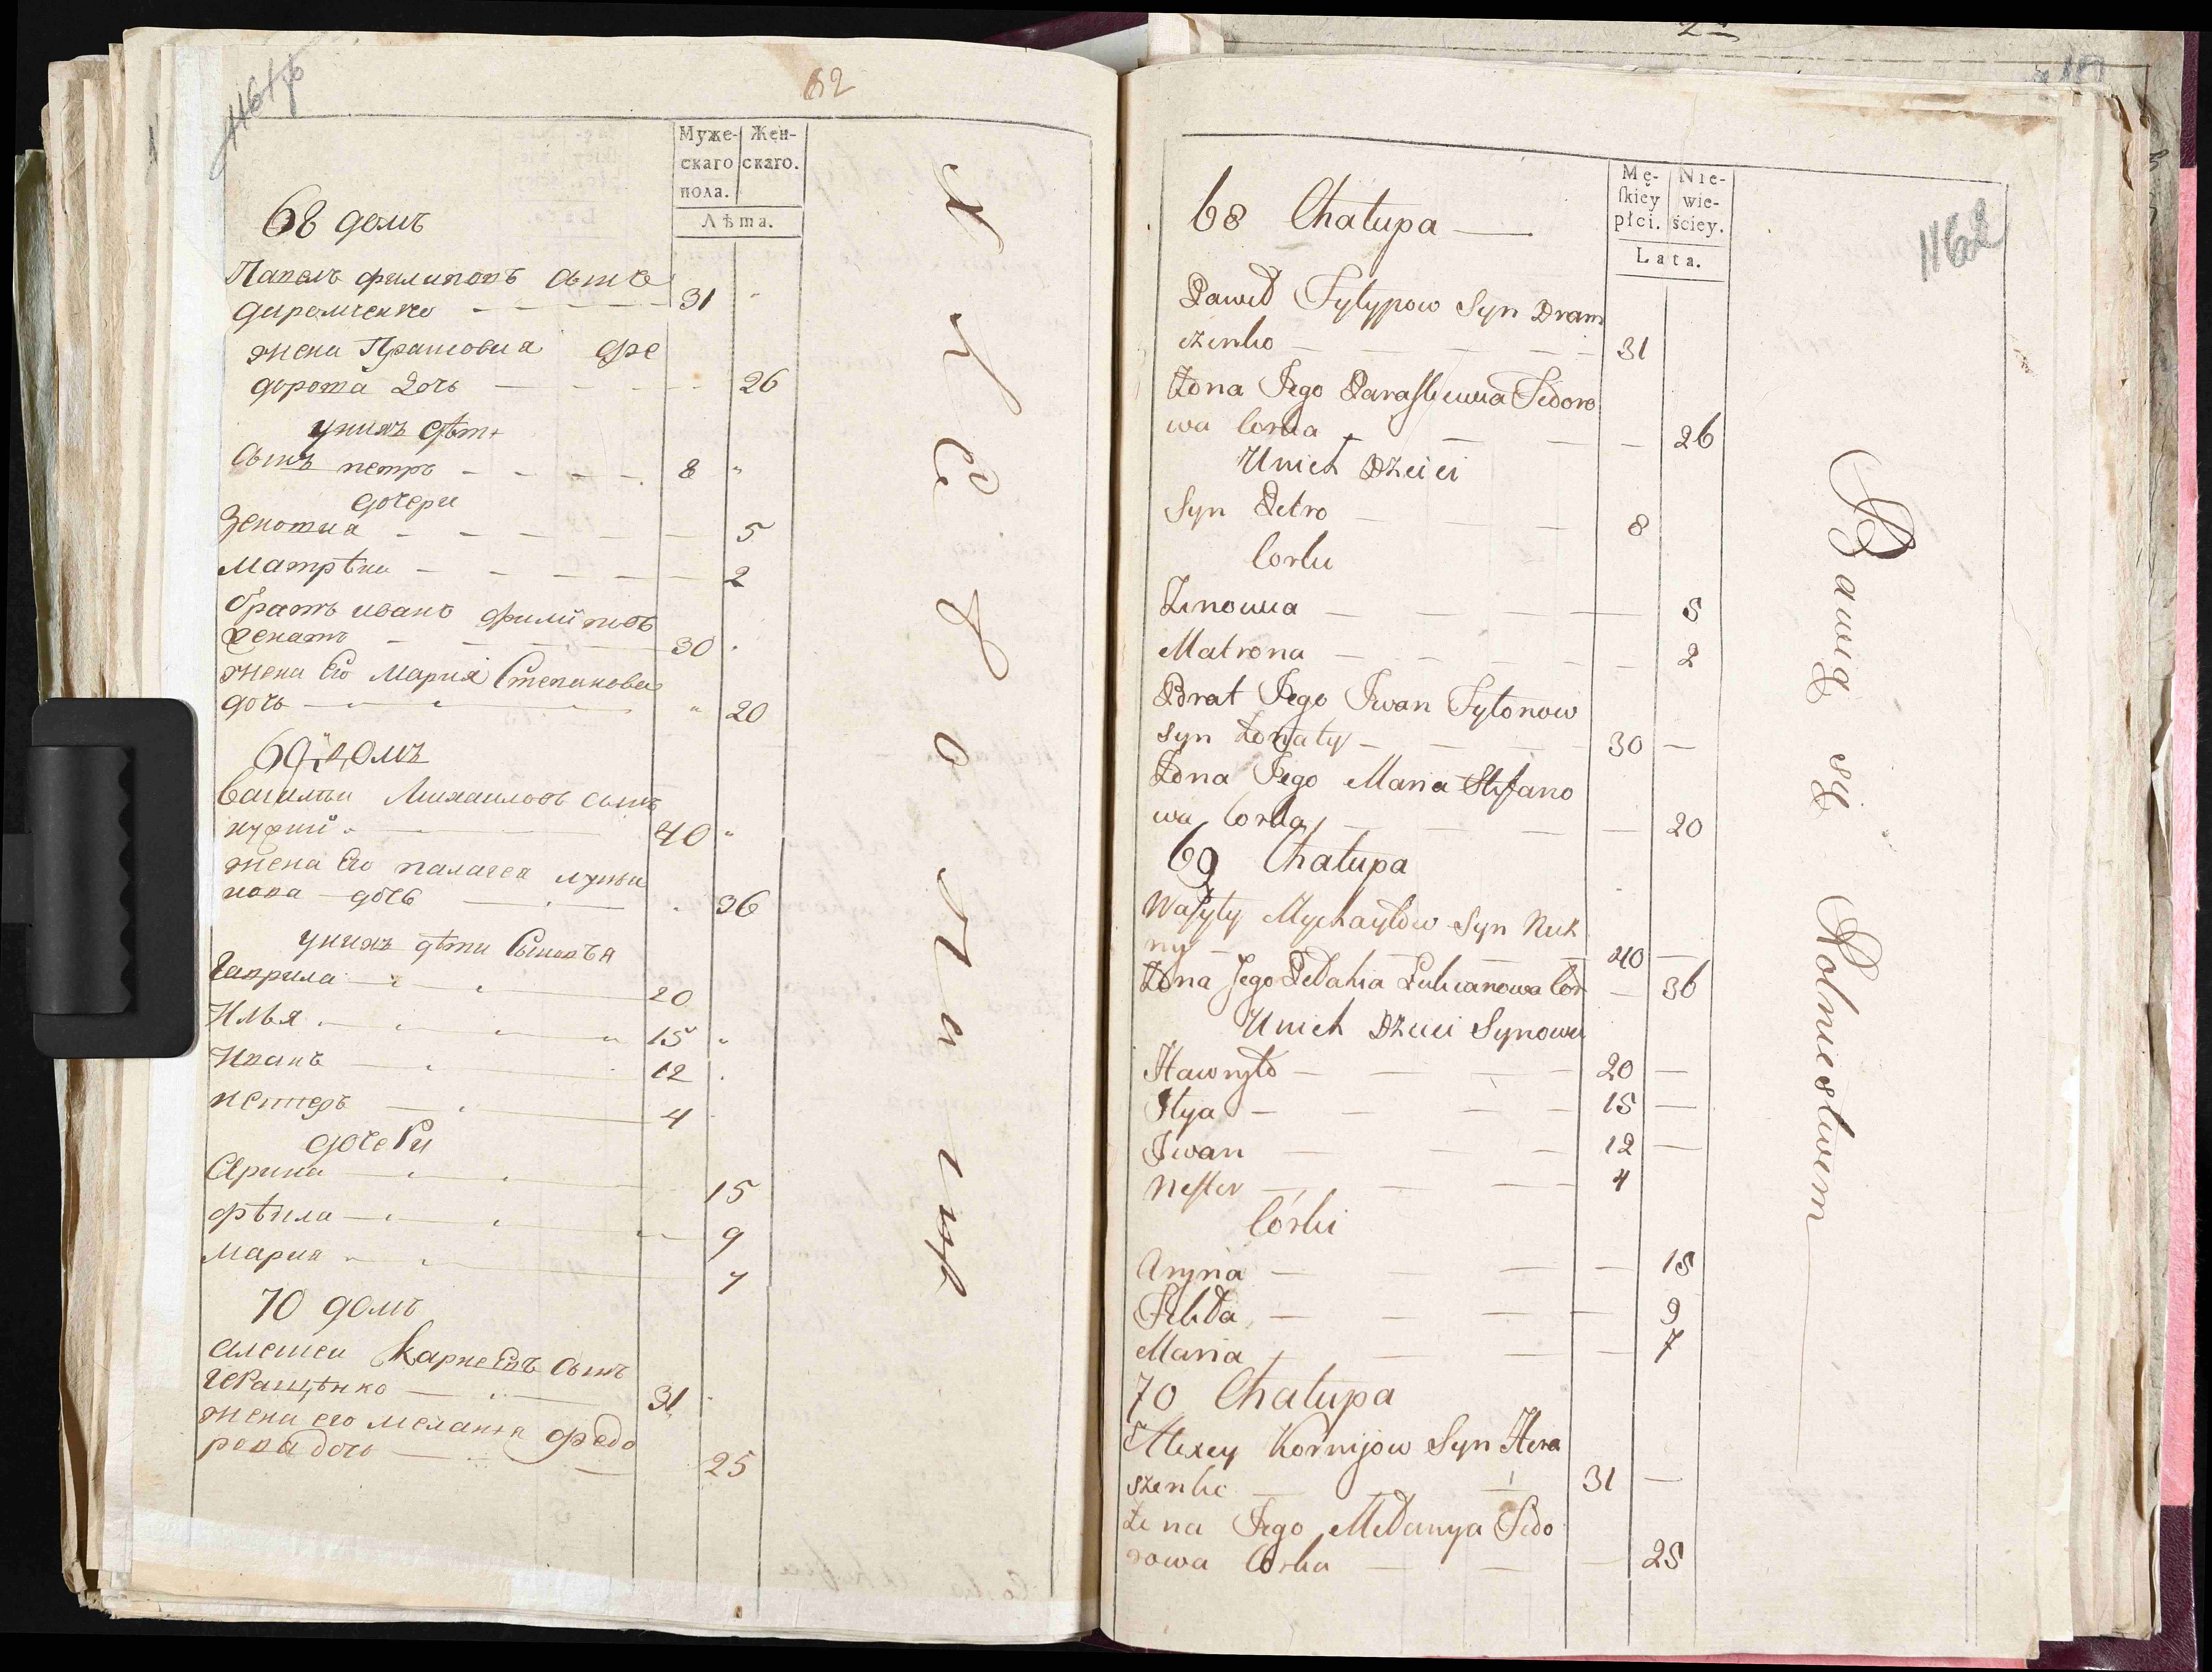 62
Муже-
скаго
пола.
Жен-
скаго.
Лѣта.
68 домъ
Павелъ филиповъ сынъ
31
жена Прасковиа фе
дорова дочь 26
унихъ дѣти
сынъ петръ 8
дочери
Зеновиа 5
матрѣна 2
братъ иванъ филиповъ
30
жена Его Мария Степанова
дочь 20
69 домъ
василъи Михаиловъ сынъ
40
жена Его палагея лукьи
нова дочь 36
унихъ дѣти Сыновья
Гаврила 20
Илья 15
Иванъ 12
нестеръ 4
дочери
Арина 15
фѣкла 9
Мария 7
70 домъ
алексеи Карнеевъ сынъ
Геращѣнко 31
жена его меланья федо
рова дочь 25
1162
Mę-
skiey
płci.
Nie-
wie-
ściey.
Lata.
68 Chałupa
Paweł Fylypow Syn
31
Żona Jego Paraskewia Fedoro
wa Corka 26
Unich Dzieci
Syn Petro 8
Corki
Zinowia 5
Matrona 2
Brat Jego Iwan Fylonow
syn 30
Żona Jego Maria Stefano
wa Corka 20
69 Chałupa
Wasyly Mychayłow Syn Kuh
ny 40
Żona Jego Pełahia Lukianowa Cór 36
Unich Dzieci Synowie
Hawryło 20
Ilya 15
Iwan 12
Nester 4
Córki
Aryna 15
Fekła 9
Maria 7
70 Chałupa
Alexey Kornijow Syn Hera
szenko 31
Żona Jego Mełanya Fedo
rowa Corka 25
Bawią się Rolnictwem